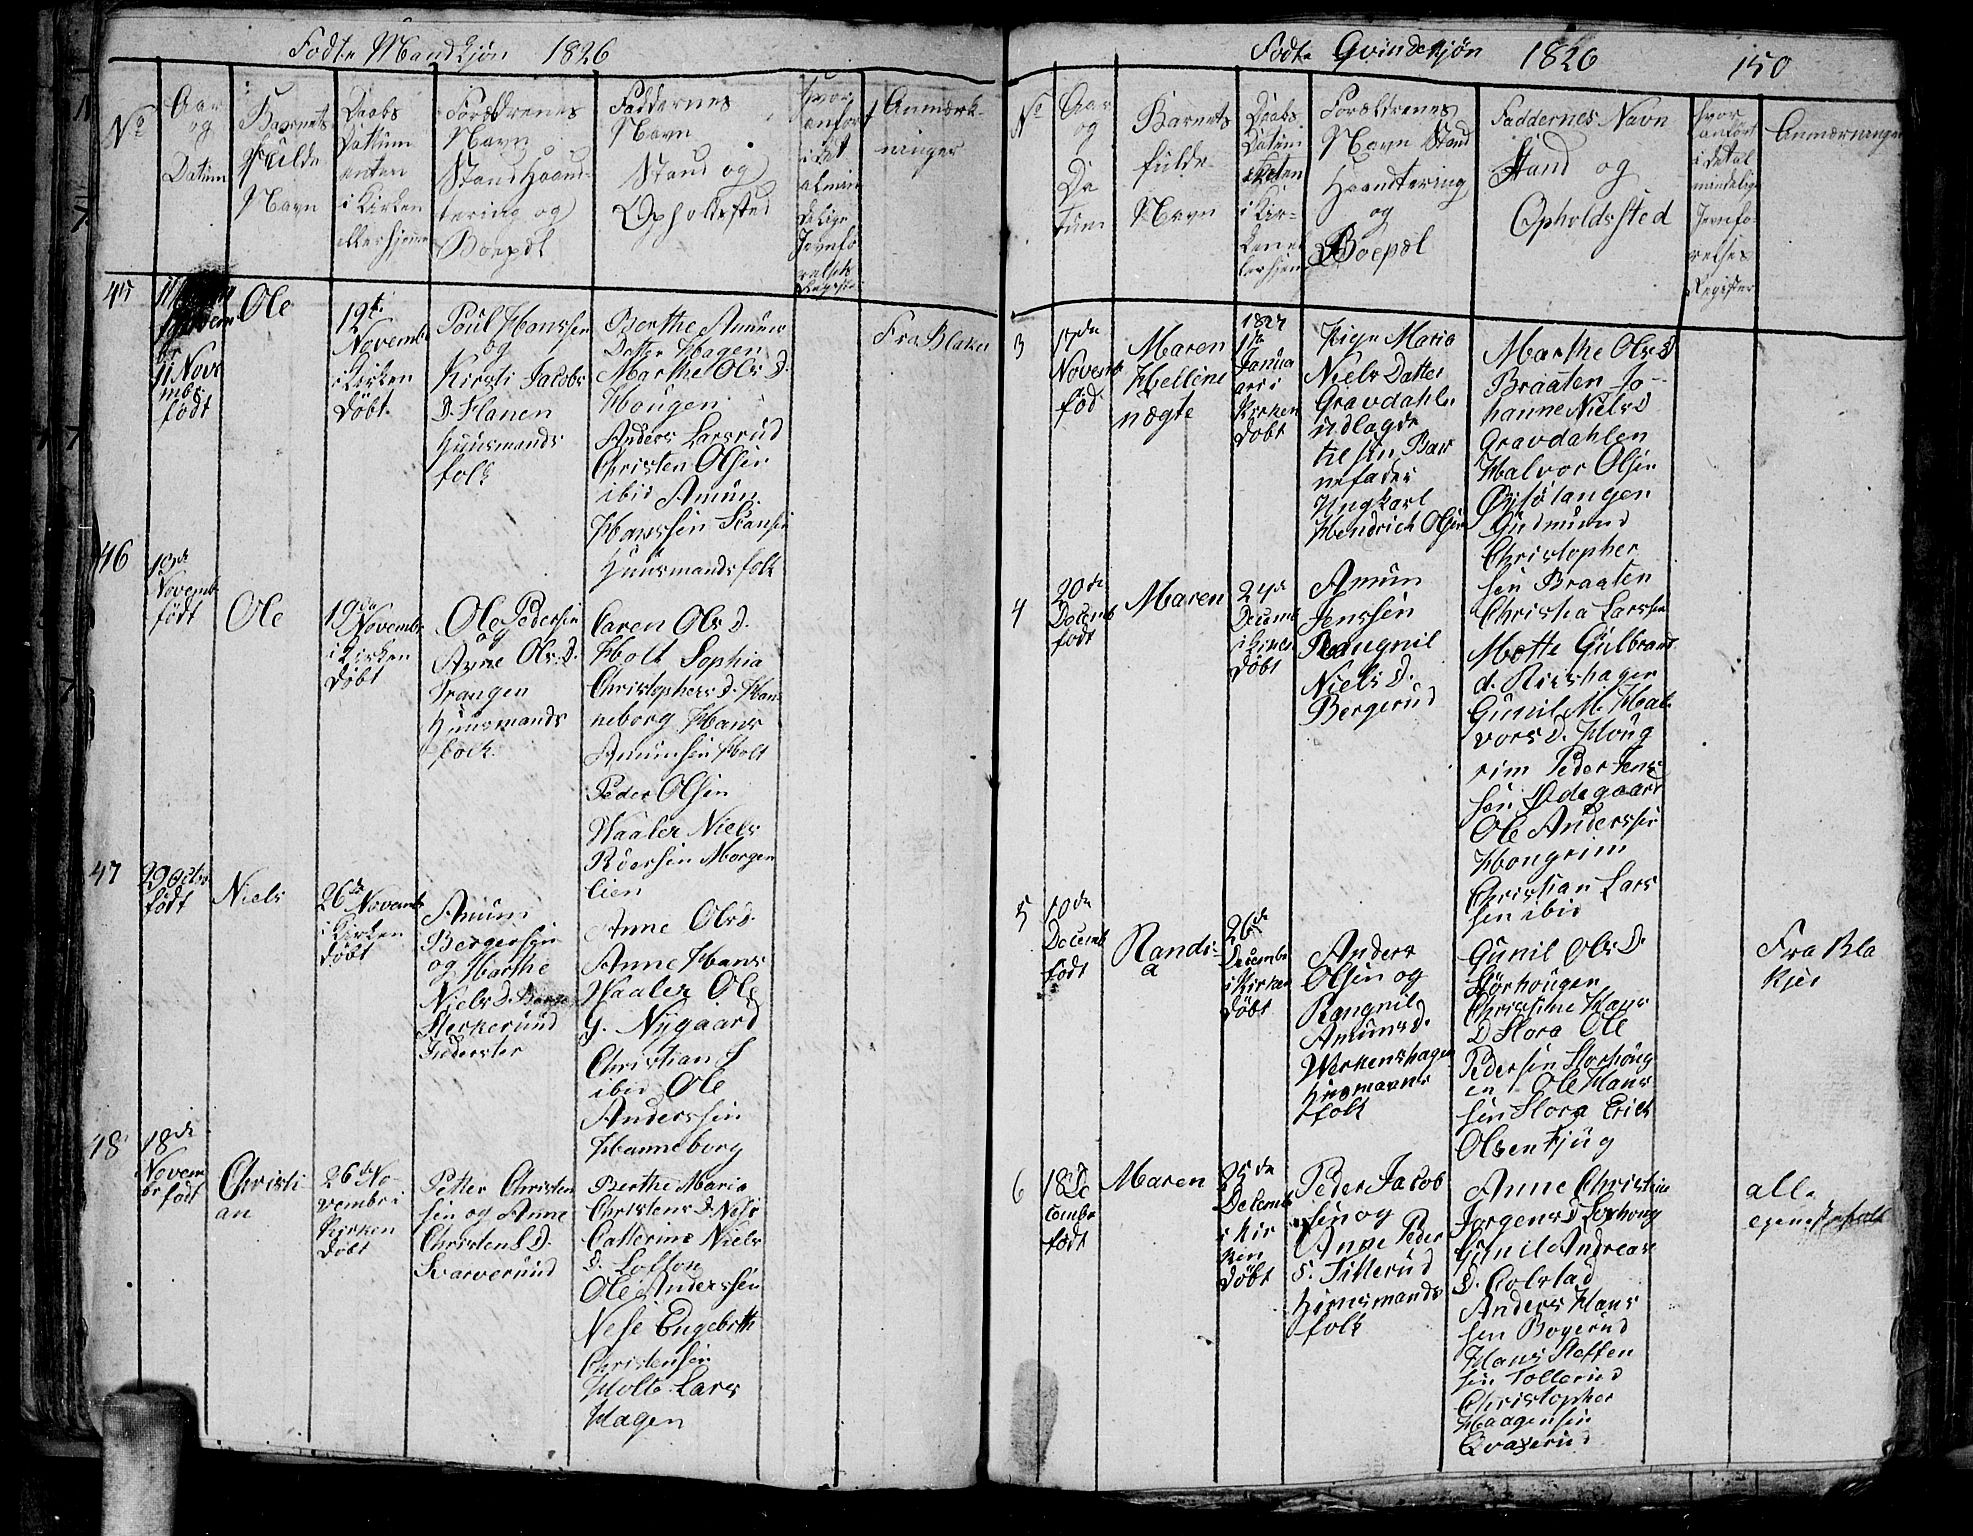 Fødte Mandkjøn 1826
No
Aar
og
Datum
Barnets
Fulde
Navn
Daabs
Datum
enten
i Kirken
eller hjemme
Forældrenes
Navn
Stand Haand-
tering og
Boepæl
Faddernes
Navn
Stand og
Opholdsted
Hvor
anfört
i det
almin
delige
Jevnfö
relses
Register
Anmærk-
ninger
45
11 Nove
mbr
født
Ole
19de
Novemb
i Kirken
døbt
Poul Hanssen
og
Kirsti Jacobs
D. Hanen
Huusmands
folk
Berthe Amun
Datter Hagen
Marthe Ols D.
Hougen
Anders Larsrud
Christen Olsen
ibid Amun
Hanssen
Huusmandsfolk
Fra Blaker
46
Novemb
født
Ole
19de
Novemb
i Kirken
døbt
Ole Pedersen
og
Anne Ols D.
Prangen
Huusmands
folk
Caren Ols D.
Holt Sophia
Christophers D. Han
neborg Hans
Amunsen Holt
Peder Olsen
Haaler Niels
Pedersen Morgen
lien
47
29 Octbr
født
Niels
26de Novemb
i Kirken
døbt
Amun
Bergersen
og Marthe
Niels D.
Inderster
Anne Ols D.
Anne Hans
Haaler Ole
G. Nygaard
Christian S
ibid Ole
Anderssen
Hanneborg
48
18de
Novem
br født
Christi
an
26de No
vembr i
Kirken
døbt
Petter Christen
sen og Anne
Christens D.
Svarverund
Berthe Maria
Christens D. Nese
Catterine Niels
D. Lofton
Ole Anderssen
Nese Engebrth
Christensen
Holte Lars
Hagen
Fødte Qvindekjøn 1826
150
No
Aar
og
Da
tum
Barnets
fulde
Navn
Daabs
Datum
enten
i Kir-
ken el
ler hjem
Forældrenes
Navn Stand
Haandtering
og
Boepæl
Faddernes Navn
Stand og
Opholdsted
Hvor
anfört
i det al
mindelige
Jevnfö-
relses
Register
Anmærninger
3
17de
Novemb
fød
Maren
Helline
uægte
1827
1te
Janua
ari i
Kirken
døbt
Pige Maria
Niels Datter
Gravdahle
udlagde
til sin Bar
nefader
Ungkarl
Hendrich Olsen
Marthe Ols D
Braaten Jo-
hanne Niels D
Gravdahlen
Halvor Olsen
Gudmund
Christopher
sen Braaten
4
20de
Decemb
født
Maren
24de
Decemb
i Kirken
døbt
Amun
Jenssen
Rangnil
Niels D.
Bergerud
Christia Larssen
Mette Gulbrand
d. Riishagen
Gunil M. Hal
vors D. Houg
rim Peder Jens
sen Ødegaard
Ole Anderssen
Hougrim
Christian Lars
sen ibid
5
10de
Decemb
født
Randi
a
26de
Decembr
i Kirken
døbt
Anders
Olsen og
Rangnil
Amuns D.
Wirkenshagen
Husmands
folk
Gunil Ols D.
Storhougen
Christine Hans
D Flora Ole
Pedersen Storhoug
en Ole Hans
sen Flora Erich
Olsen Fjug
Fra Bla
kjer
6
18 De
cembr
født
Maren
25de
Decemb
i Kir
ken
døbt
Peder Jacob
sen og
Anne Peder
D. Tillerud
Huusmands
folk
Anne Christine
Jørgens D. Storhoug
Gunil Andreas
D. Colstad
Anders Hans
sen Bogerud
Hans Steffen
sen Tollerud
Christopher
Haagensen
Qvaserud
alle
egne